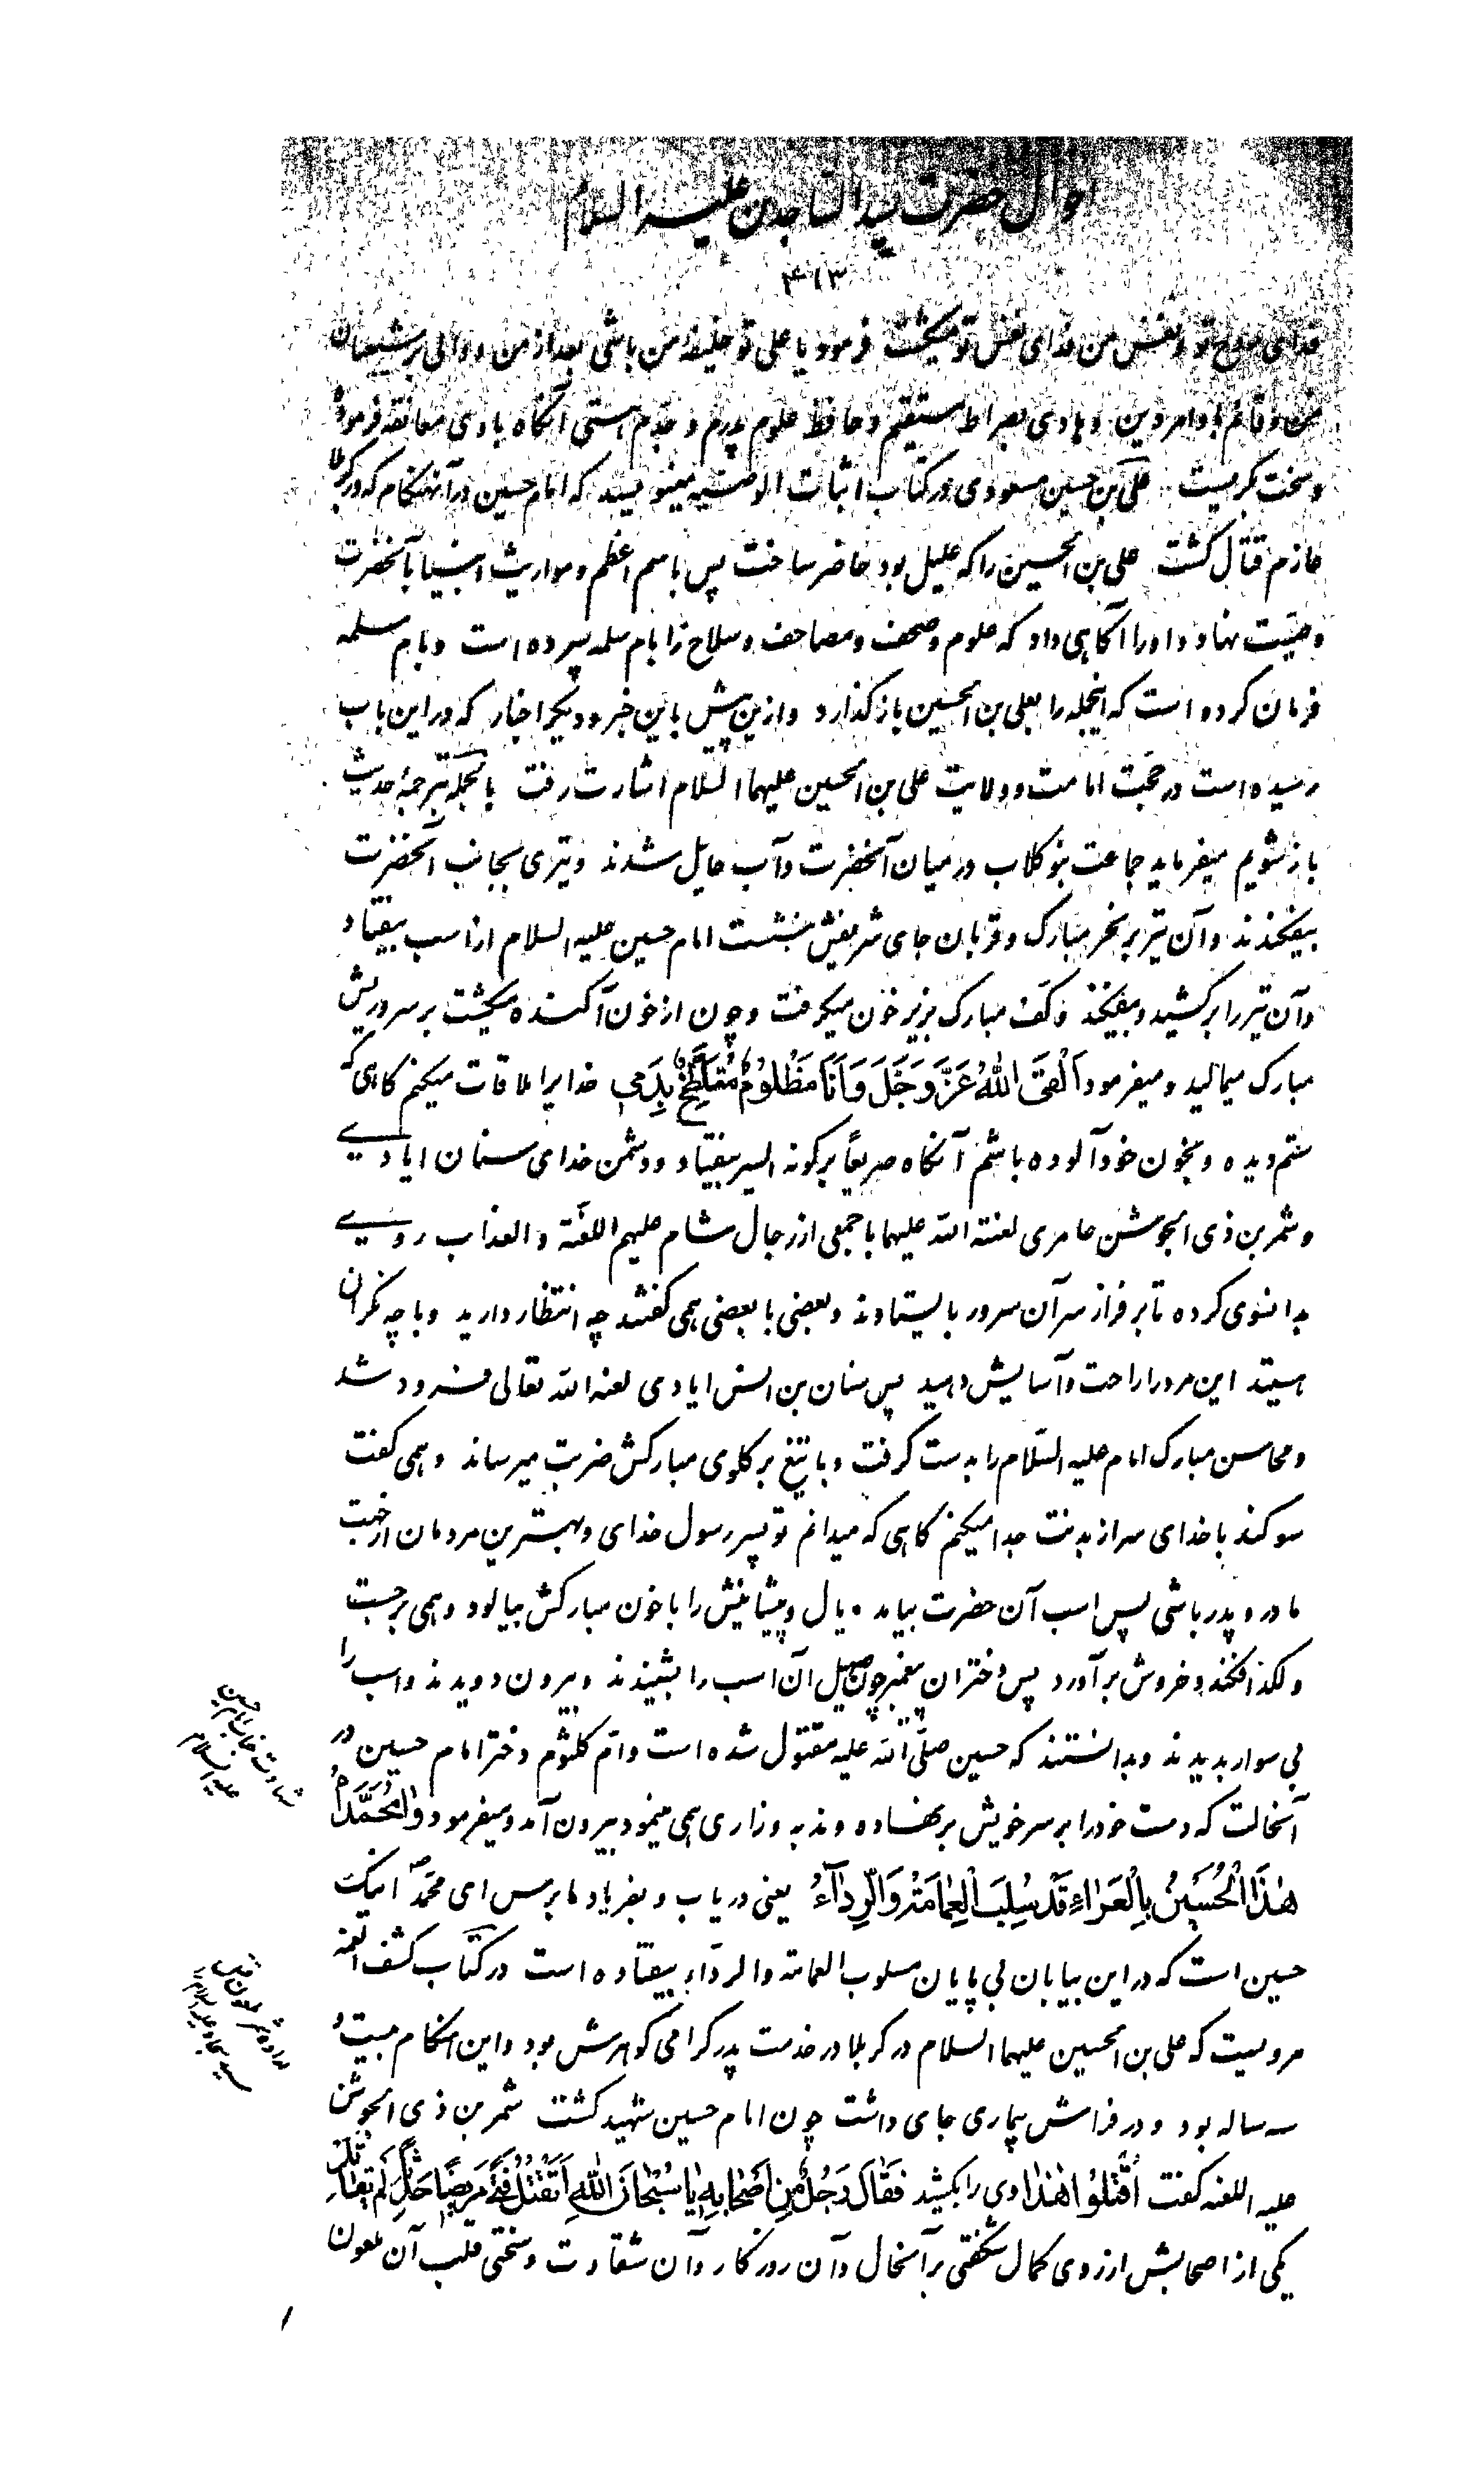 احوال حضرت سید الساجدین علیه السلام
۴۱۳
فدای روح تو و نفس من فدای نفس تو میگشت فرمود یا علی تو خلیفه من باشی بعد از من و والی بر شیعیان
من و قائم باوامر دین و هادی بصراط مستقیم و حافظ علوم پدرم و جدم هستی آنگاه با وی معانقه فرمود
و سخت بگریست علی بن حسین مسعودی در کتاب اثبات الوصیه مینویسد که امام حسین در آنهنگام که در کربلا
عازم قتال گشت علی بن الحسین را که علیل بود حاضر ساخت پس باسم اعظم و مواریث انبیا بآنحضرت
وصیت نهاد و او را آگاهی داد که علوم و صحف و مصاحف و سلاح را بام سلمه سپرده است و بام سلمه
فرمان کرده است که اینجمله را بعلی بن الحسین باز گذارد و ازین پیش باین خبر و دیگر اخبار که در این باب
رسیده است در حجت امامت و ولایت علی بن الحسین علیهما السلام اشارت رفت بالجمله بترجمۀ حدیث
باز شویم میفرماید جماعت بنو کلاب در میان آنحضرت و آب حایل شدند و تیری بجانب آنحضرت
بیفکندند و آن تیر بر نحر مبارک و قربان جای شریفش بنشست امام حسین علیه السلام از اسب بیفتاد
و آن تیر را بر کشید و بیفکند و کف مبارک بزیر خون میگرفت و چون از خون آکنده میگشت بر سر و ریش
مبارک میمالید و میفرمود اَلْقَی اللّٰهَ عَزَّ وَجَلَّ وَ اَنَا مَظْلُومٌ مُتَلَطِّخٌ بِدَمی خدایرا ملاقات میکنم گاهی که
ستم دیده و بخون خود آلوده باشم آنگاه صریعاً برگونه ایسر بیفتاد و دشمن خدای سنان ایادی
و شمر بن ذی الجوشن عامری لعنة الله علیهما با جمعی از رجال شام علیهم اللعنة و العذاب روی
بدانسوی کرده تا بر فراز سر آن سرور بایستادند و بعضی با بعضی همی گفتند چه انتظار دارید و با چه نگران
هستید این مرد را راحت و آسایش دهید پس سنان بن انس ایادی لعنه الله تعالی فرود شد
و محاسن مبارک امام علیه السلام را بدست گرفت و با تیغ بر گلوی مبارکش ضربت میرساند و همی گفت
سوگند با خدای سر از بدنت جدا میکنم گاهی که میدانم تو پسر رسول خدای و بهترین مردمان از جهت
مادر و پدر باشی پس اسب آن حضرت بیامد و یال و پیشانیش را با خون مبارکش بیالود و همی برجست
و لگد افکند و خروش برآورد پس دختران پیغمبر چون صهیل آن اسب را بشنیدند و بیرون دویدند و اسب را
بی سوار بدیدند و بدانستند که حسین صلی الله علیه مقتول شده است و ام کلثوم دختر امام حسین در
آنحالت که دست خود را بر سر خویش بر نهاده و ندبه و زاری همی مینمود بیرون آمد و میفرمود وٰامُحَمَّدٰاهُ
هٰذَا الْحُسَیْنُ بِالْعَرٰاءِ قَدْ سُلِبَ الْعِمٰامَةُ وَ الرِّدٰآءُ یعنی دریاب و بفریاد ما برس ای محمد ص اینک
حسین است که در این بیابان بی پایان مسلوب العمامه و الرداء بیفتاده است در کتاب کشف الغمه
مرویست که علی بن الحسین علیهما السلام در کربلا در خدمت پدر گرامی گوهرش بود و این هنگام بیست و
سه ساله بود و در فراش بیماری جای داشت چون امام حسین شهید گشت شمر بن ذی الجوشن
علیه اللعنه گفت اُقْتُلُوا هٰذٰا وی را بکشید فَقٰالَ رَجُلٌ مِنْ اَصْحٰابِهِ یٰا سُبْحٰانَ اللّٰهِ اَتَقْتُلُ فَتًی مَریضًا حَدَثًا لَمْ یُقٰاتِلْ
یکی از اصحابش از روی کمال شگفتی بر آنحال و آن روزگار و آن شقاوت و سختی قلب آن ملعون
شهادت جناب امام حسین
علیه السلام
اراده شمر ملعون قتل
سید سجاد علیه السلام را